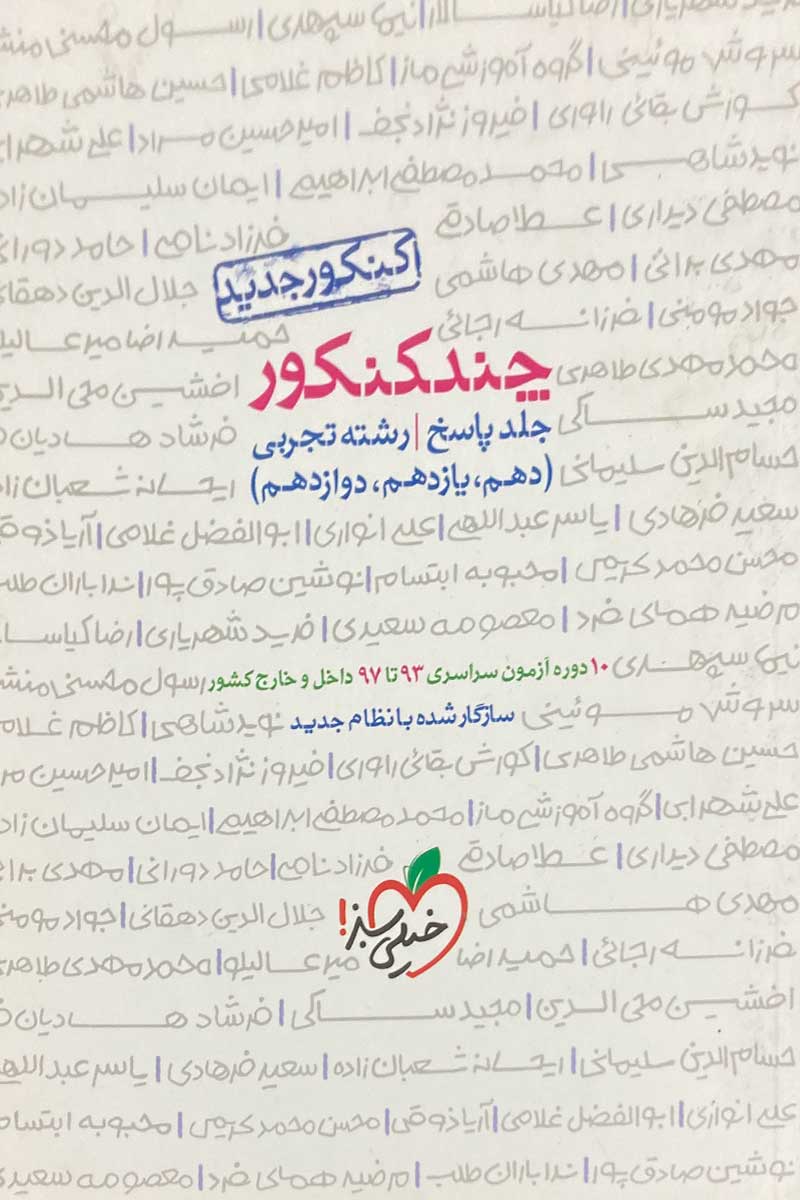 رسول محسنی منش | نیما سپهری | رضا کیاسالار
سروش موئینی | گروه آموزشی ماز | کاظم غلامی | حسین هاشمی طاهری
کورش بقائی راوری | فیروز نژادنجف | امیرحسین مراد | علی شهرابی
نوید شاهی | محمدمصطفی ابراهیمی | ایمان سلیمان زاد
مصطفی دیداری | عطا صادقی فرزاد نامی | حامد دورانی
مهدی براتی | مهدی هاشمی کنکور جدید جلال الدین دهقانی
جواد مومنی | فرزانه رجائی حمیدرضا میرعالیلو
محمدمهدی طاهری چند کنکور افشین محی الدین
مجید ساکی جلد پاسخ | رشته تجربی فرشاد هادیان ف
حسام الدین سلیمانی (دهم، یازدهم، دوازدهم) ریحانه شعبان زا
سعید فرهادی | یاسر عبداللهی | علی انواری | ابوالفضل غلامی | آریا ذوق
محسن محمدکریمی | محبوبه ابتسام | نوشین صادق پور | ندا باران طلب
مرضیه همای فرد | معصومه سعیدی | فرید شهریاری | رضا کیاسا
نیما سپهری ۱۰ دوره آزمون سراسری ۹۳ تا ۹۷ داخل و خارج کشور رسول محسنی منش
سروش موئینی سازگار شده با نظام جدید نوید شاهی | کاظم غلام
حسین هاشمی طاهری | کورش بقائی راوری | فیروز نژادنجف | امیرحسین مر
علی شهرابی | گروه آموزشی ماز | محمدمصطفی ابراهیمی | ایمان سلیمان زاد
مصطفی دیداری | عطا صادقی فرزاد نامی | حامد دورانی | مهدی برا
مهدی هاشمی خیلی سبز! جلال الدین دهقانی | جواد مومنی
فرزانه رجائی | حمیدرضا میرعالیلو | محمدمهدی طاهری
افشین محی الدین | مجید ساکی | فرشاد هادیان ف
حسام الدین سلیمانی | ریحانه شعبان زاده | سعید فرهادی | یاسر عبداللهی
علی انواری | ابوالفضل غلامی | آریا ذوقی | محسن محمدکریمی | محبوبه ابتسام
نوشین صادق پور | ندا باران طلب | مرضیه همای فرد | معصومه سعیدی